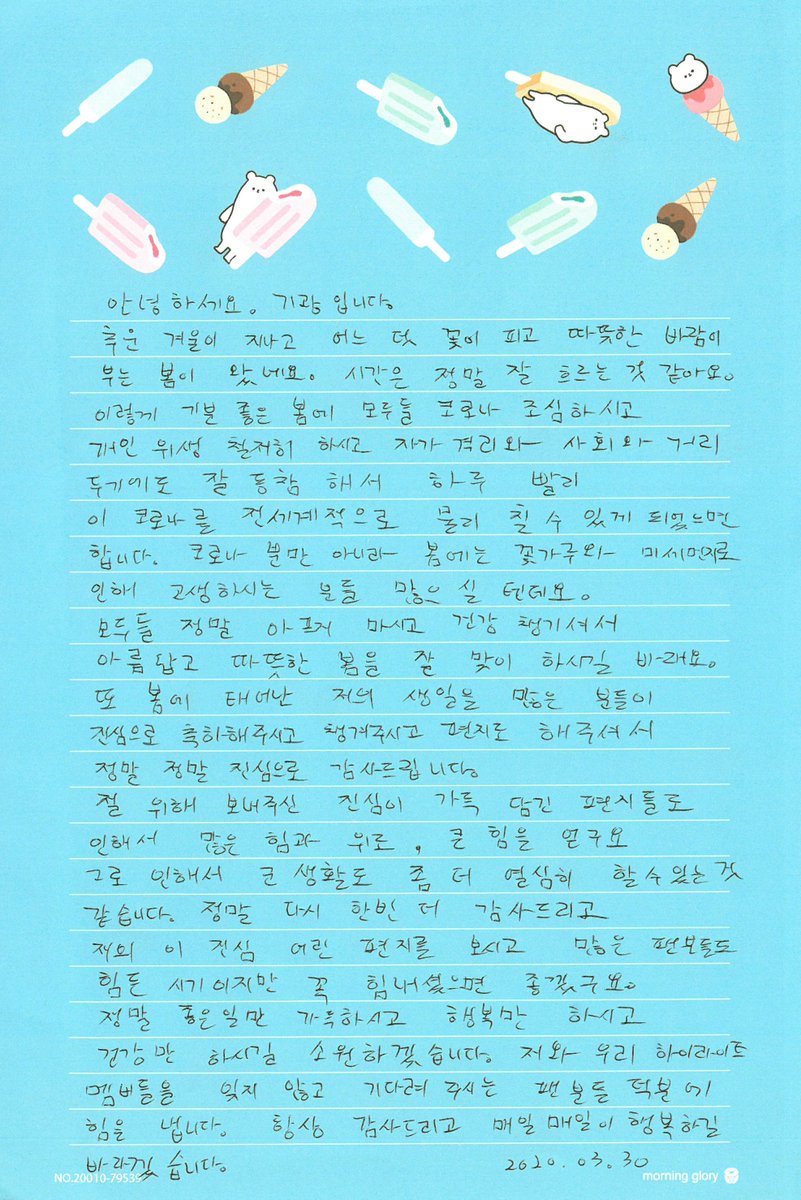 안녕하세요. 기광입니다.
추운 겨울이 지나고 어느 덧 꽃이 피고 따뜻한 바람이
부는 봄이 왔네요. 시간은 정말 잘 흐르는 것 같아요.
이렇게 기분 좋은 봄에 모두들 코로나 조심하시고
개인 위생 철저히 하시고 자가 격리와 사회와 거리
두기에도 잘 동참 해서 하루 빨리
이 코로나를 전세계적으로 물리 칠 수 있게 되었으면
합니다. 코로나 뿐만 아니라 봄에는 꽃가루와 미세먼지로
인해 고생하시는 분들 많으실 텐데요.
모두들 정말 아프지 마시고 건강 챙기셔서
아름답고 따뜻한 봄을 잘 맞이 하시길 바래요.
또 봄에 태어난 저의 생일을 많은 분들이
진심으로 축하해주시고 챙겨주시고 편지도 해주셔서
정말 정말 진심으로 감사드립니다.
절 위해 보내주신 진심이 가득 담긴 편지들로
인해서 많은 힘과 위로, 큰 힘을 얻구요
그로 인해서 군 생활도 좀 더 열심히 할 수 있는 것
같습니다. 정말 다시 한번 더 감사드리고
저의 이 진심 어린 편지를 보시고 많은 팬분들도
힘든 시기이지만 꼭 힘내셨으면 좋겠구요.
정말 좋은일만 가득하시고 행복만 하시고
건강만 하시길 소원하겠습니다. 저와 우리 하이라이트
멤버들을 잊지 않고 기다려 주시는 팬 분들 덕분에
힘을 냅니다. 항상 감사드리고 매일 매일이 행복하길
바라겠습니다. 2020.03.30
NO.20010-79539 morning glory